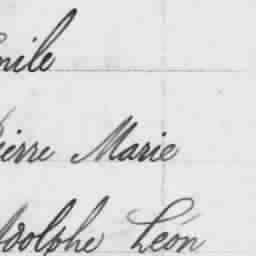 mile
Pierre Marie
Adolphe Léon